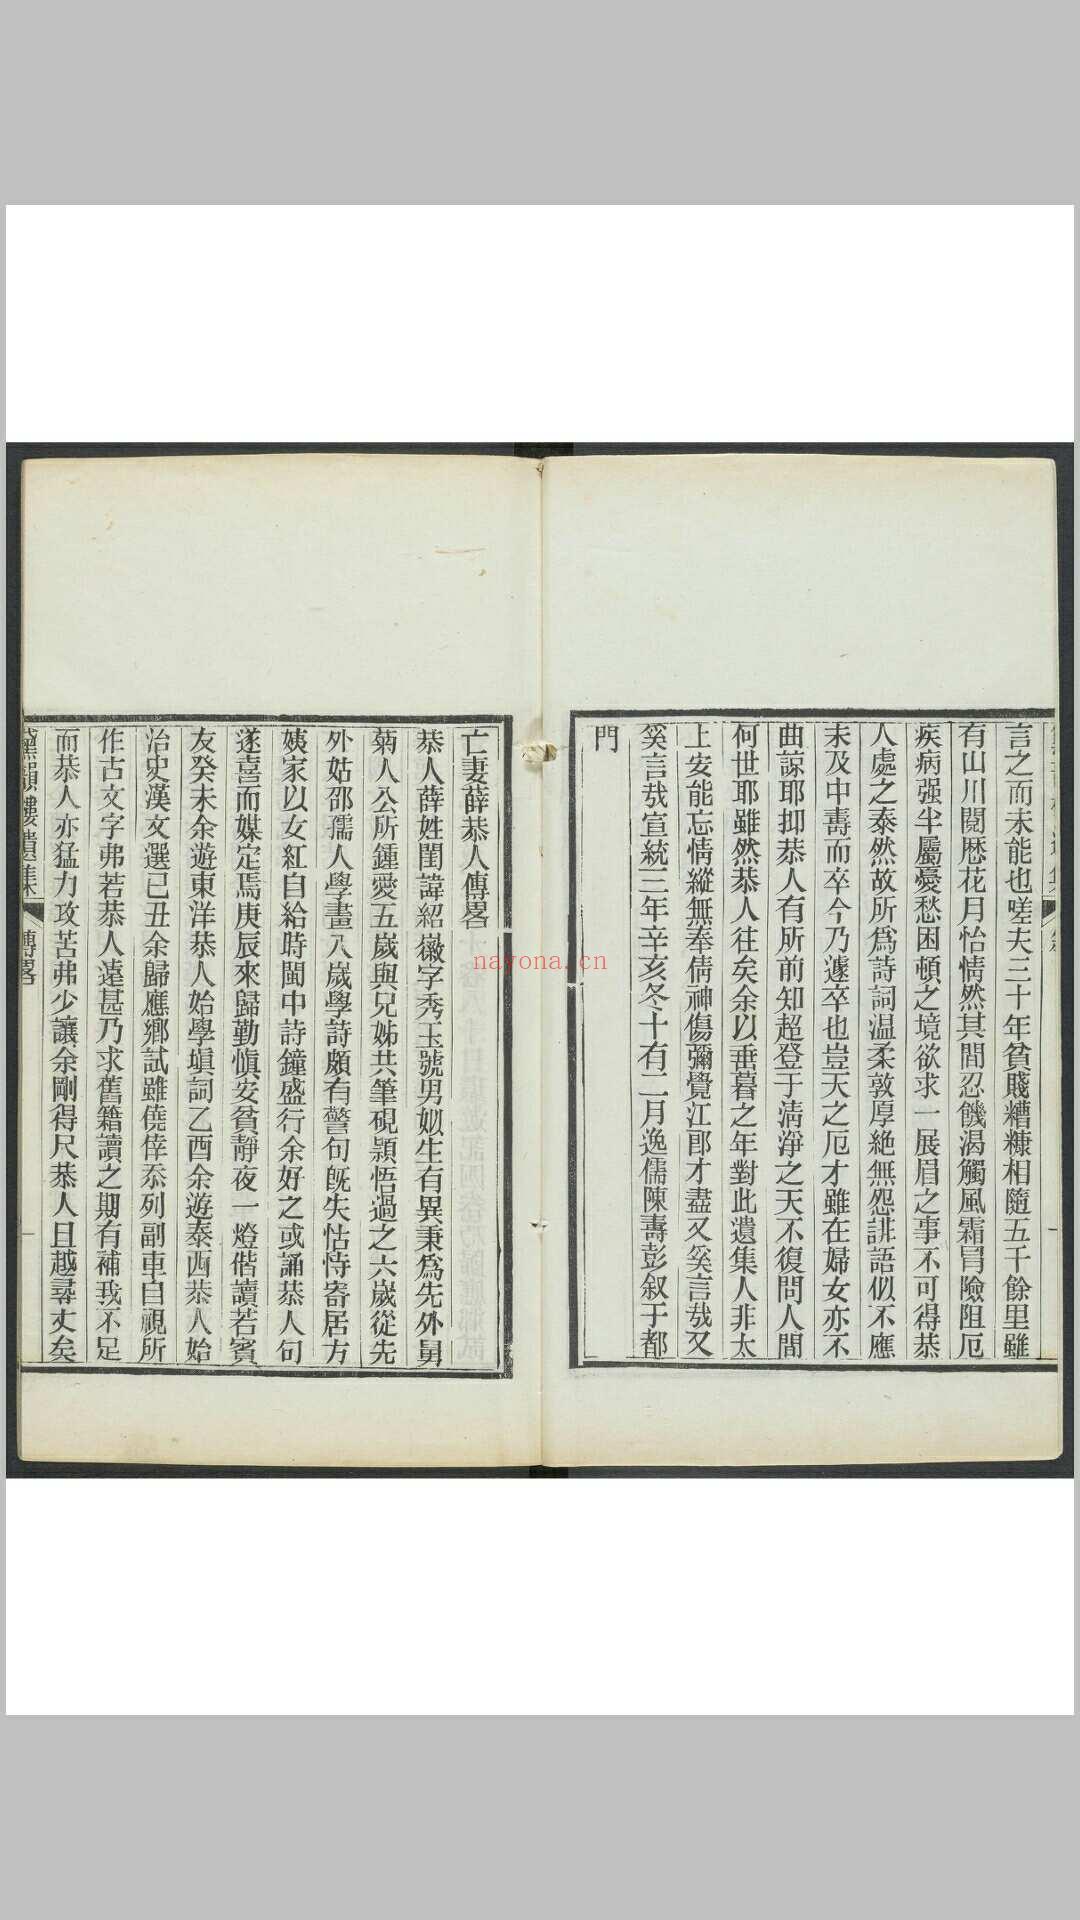 言之而未能也嗟夫三十年貧賤糟糠相隨五千餘里雖
有山川閱歷花月怡情然其間忍饑渴觸風霜冒險阻厄
疾病强半屬憂愁困頓之境欲求一展眉之事不可得恭
人處之泰然故所爲詩詞温柔敦厚絶無怨誹語似不應
未及中壽而卒今乃遽卒也豈天之厄才雖在婦女亦不
曲諒耶抑恭人有所前知超登于淸淨之天不復問人間
何世耶雖然恭人往矣余以垂暮之年對此遺集人非太
上安能忘情縱無奉倩神傷彌覺江郎才盡又奚言哉又
奚言哉宣統三年辛亥冬十有二月逸儒陳壽彭叙于都
門
亡妻薛恭人傳畧
恭人薛姓閨諱紹徽字秀玉號男姒生有異秉爲先外舅
菊人公所鍾愛五歲與兄姊共筆硯頴悟過之六歲從先
外姑邵孺人學畫八歲學詩頗有警句旣失怙恃寄居方
姨家以女紅自給時閩中詩鐘盛行余好之或誦恭人句
遂喜而媒定焉庚辰來歸勤愼安貧靜夜一燈偕讀若賓
友癸未余遊東洋恭人始學塡詞乙酉余遊泰西恭人始
治史漢文選已丑余歸應鄉試雖僥倖忝列副車自視所
作古文字弗若恭人遠甚乃求舊籍讀之期有補我不足
而恭人亦猛力攻苦弗少讓余剛得尺恭人且越尋丈矣
黛韻樓遺集 傳畧 一
nayona.cn